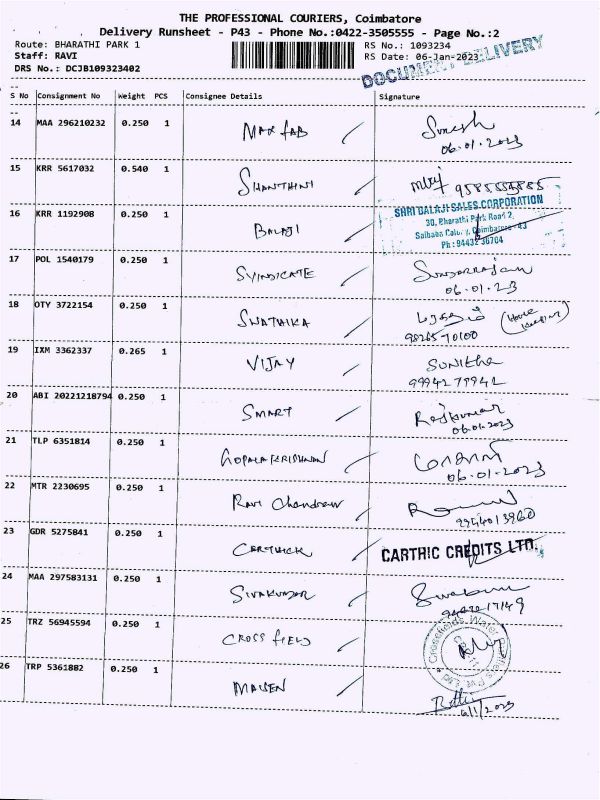 THE PROFESSIONAL COURIERS, Coimbatore
Delivery Runsheet - P43 - Phone No.:0422-3505555 - Page No.:2
Route: BHARATHI PARK 1 RS No.: 1093234
Staff: RAVI RS Date: 06-Jan-2023
DRS No.: DCJB109323402
DOCUMENT DELIVERY
S No Consignment No Weight PCS Consignee Details Signature
14 MAA 296210232 0.250 1 MAX FAB Suresh
06.01.2023
15 KRR 5617032 0.540 1 SHANTHINI
16 KRR 1192908 0.250 1 BALAJI SHRI BALAJI SALES CORPORATION
30, Bharathi Park Road 2,
Saibaba Colony, Coimbatore - 43
Ph : 94432 36704
17 POL 1540179 0.250 1 SYINDICATE Sundarrajan
06.01.23
18 OTY 3722154 0.250 1 SWATHIKA
19 IXM 3362337 0.265 1 VIJAY SUNITHA
20 ABI 20221218794 0.250 1 SMART Rajkumar
06.01.2023
21 TLP 6351814 0.250 1 GOPALAKRISHNAN
06.01.2023
22 MTR 2230695 0.250 1 Ravi Chandran
9944013960
23 GDR 5275841 0.250 1 CARTHICK CARTHIC CREDITS LTD.
24 MAA 297583131 0.250 1 SIVAKUMAR
25 TRZ 56945594 0.250 1 CROSSFIELD
26 TRP 5361882 0.250 1
6/1/2023